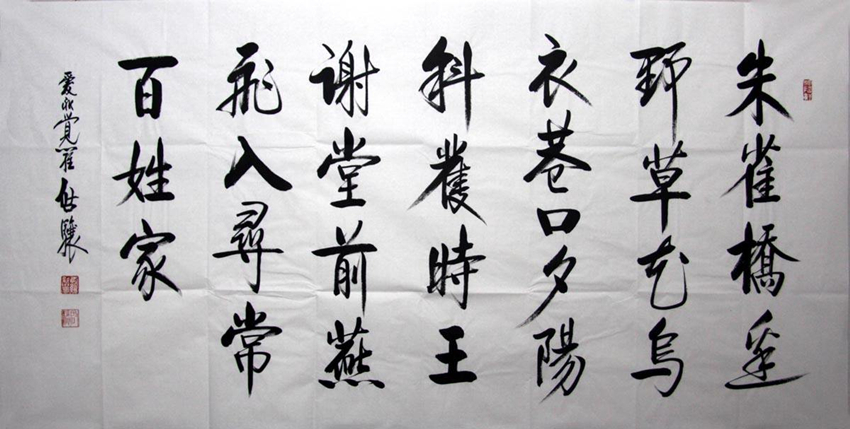 朱雀橋邊
野草花烏
衣巷口夕陽
斜舊時王
謝堂前燕
飛入尋常
百姓家
愛新覺羅啟驤